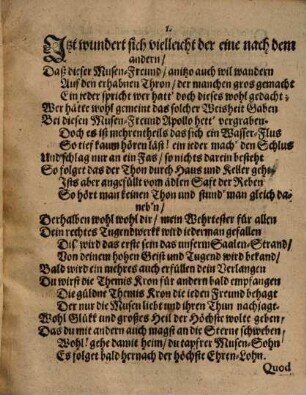 1.
Itzt wundert sich vielleicht der eine nach dem
andern/
Daß dieser Musen-Freund/ anitzo auch wil wandern
Auf den erhabnen Thron/ der manchen gros gemacht
Ein ieder spricht wer hatt' doch dieses wohl gedacht;
Wer hätte wohl gemeint das solcher Weisheit Gaben
Bei diesen Musen-Freund Apollo hett' vergraben-
Doch es ist mehrentheils das sich ein Wasser-Flus
So tief kaum hören läst / ein ieder mach' den Schlus
Und schlag nur an ein Fas/ so nichts darein besteht
So folget das der Thon durch Haus und Keller geht;
Ists aber angefüllt vom ädlen Safft der Reben
So hört man keinen Thon und stund' man gleich da-
neb'n/
Derhalben wohl wohl dir / mein Wehrtester für allen
Dein rechtes Tugendwerkk wird iederman gefallen
Dis wird das erste sein das unserm Saalen-Strand/
Von deinem hohen Geist und Tugend wird bekand/
Bald wird ein mehres auch erfüllen dein Verlangen
Du wirst die Themis Kron für andern bald empfangen
Die güldne Themis Kron die ieden Freund behagt
Der nur die Musen liebt und ihren Thun nachjagt.
Wohl Glükk und großes Heil der Höchste wolte geben/
Das du mit andern auch magst an die Sterne schweben/
Wohl! gehe damit heim/ du tapfrer Musen-Sohn/
Es folget bald hernach der höchste Ehren-Lohn.
Quod